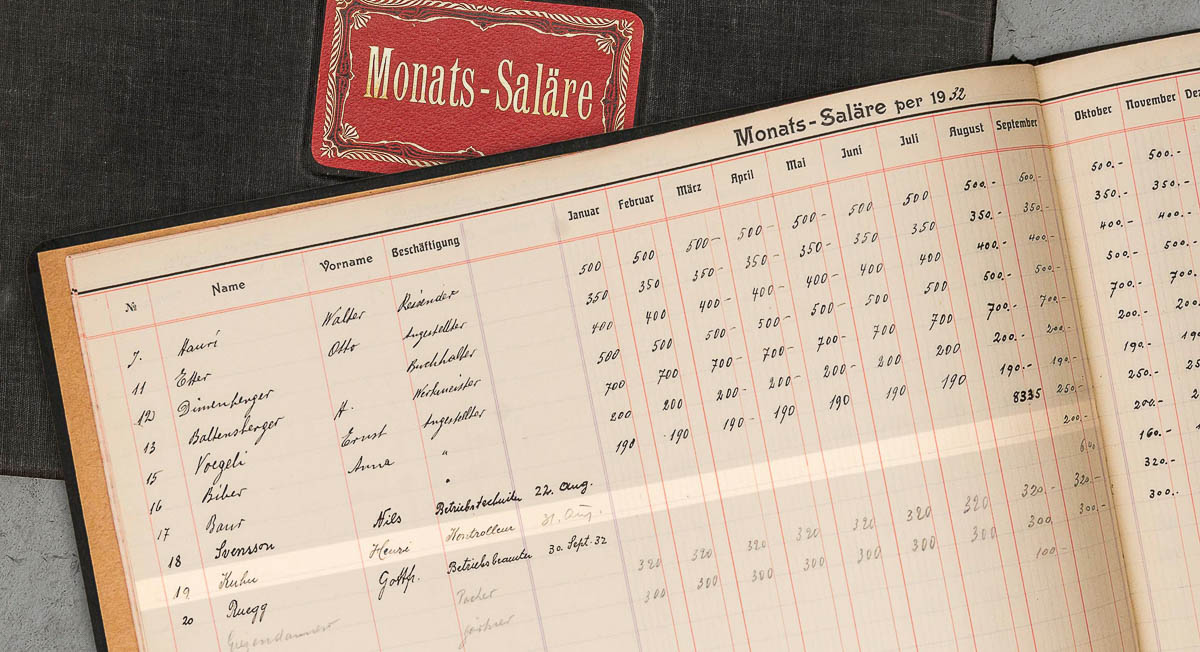 Monats-Saläre
Monats-Saläre per 1932
№ Name Vorname Beschäftigung Januar Februar März April Mai Juni Juli August September Oktober November
7. Hauri Walter Reisender 500 500 500- 500- 500- 500 500 500.- 500.- 500.- 500.-
11 Etter Otto Angestellter 350 350 350- 350- 350- 350 350 350.- 350.- 350.- 350.-
12 Dimenberger Buchhalter 400 400 400- 400- 400- 400 400 400.- 400.- 400.- 400.-
13 Baltensberger H. Werkmeister 500 500 500- 500- 500- 500 500 500.- 500.- 500.- 500.-
15 Voegeli Ernst Angestellter 700 700 700- 700- 700- 700 700 700.- 700.- 700.- 700.-
16 Biber Anna " 200 200 200- 200- 200- 200 200 200.- 200.- 200.- 200.-
17 Baur " 190 190 190- 190 190 190 190 190.- 190.- 190.- 190.-
18 Svensson Nils Betriebstechniker 22. Aug. 8335 250.- 250.-
19 Kuhn Henri Kontrolleur 31. Aug. 200.- 200.-
20 Ruegg Gottfr. Betriebsbeamter 30. Sept. 32 160.-
320 320 320 320 320 320 320 320.- 320.- 320.-
Gärtner 300 300 300 300 300 300 300 300 300.- 300.-
100-